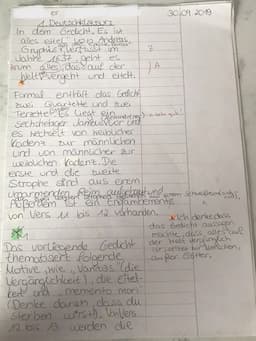 30.09.2019
1. Deutschklausur
In dem Gedicht „Es ist
alles eitel" von Andreas
Gryphius verfasst im
Jahre 1637 geht es
um alles, dass auf der
Welt vergeht und endet.
Formal enthält das Gedicht
zwei Quartette und zwei
Terzette. Es liegt ein
sechshebiger Jambus vor und
es wechselt von weiblicher
Kadenz zur männlichen
und von männlicher zur
weiblichen Kadenz. Die
erste und die zweite
Strophe sind aus einem
umarmenden Reim aufgebaut und
Außerdem ist ein Enjambements
von Vers 11 bis 12 vorhanden.
Ich denke, dass
das Gedicht aussagen
möchte, dass alles auf
der Welt vergänglich
ist,
außer Götter.
Das vorliegende Gedicht
thematisiert folgende
Motive, wie „Vanitas" (die
Vergänglichkeit), die Eitel-
keit und „memento mori"
(Denke daran, dass du
sterben wirst). In Vers
12 bis 13 werden die